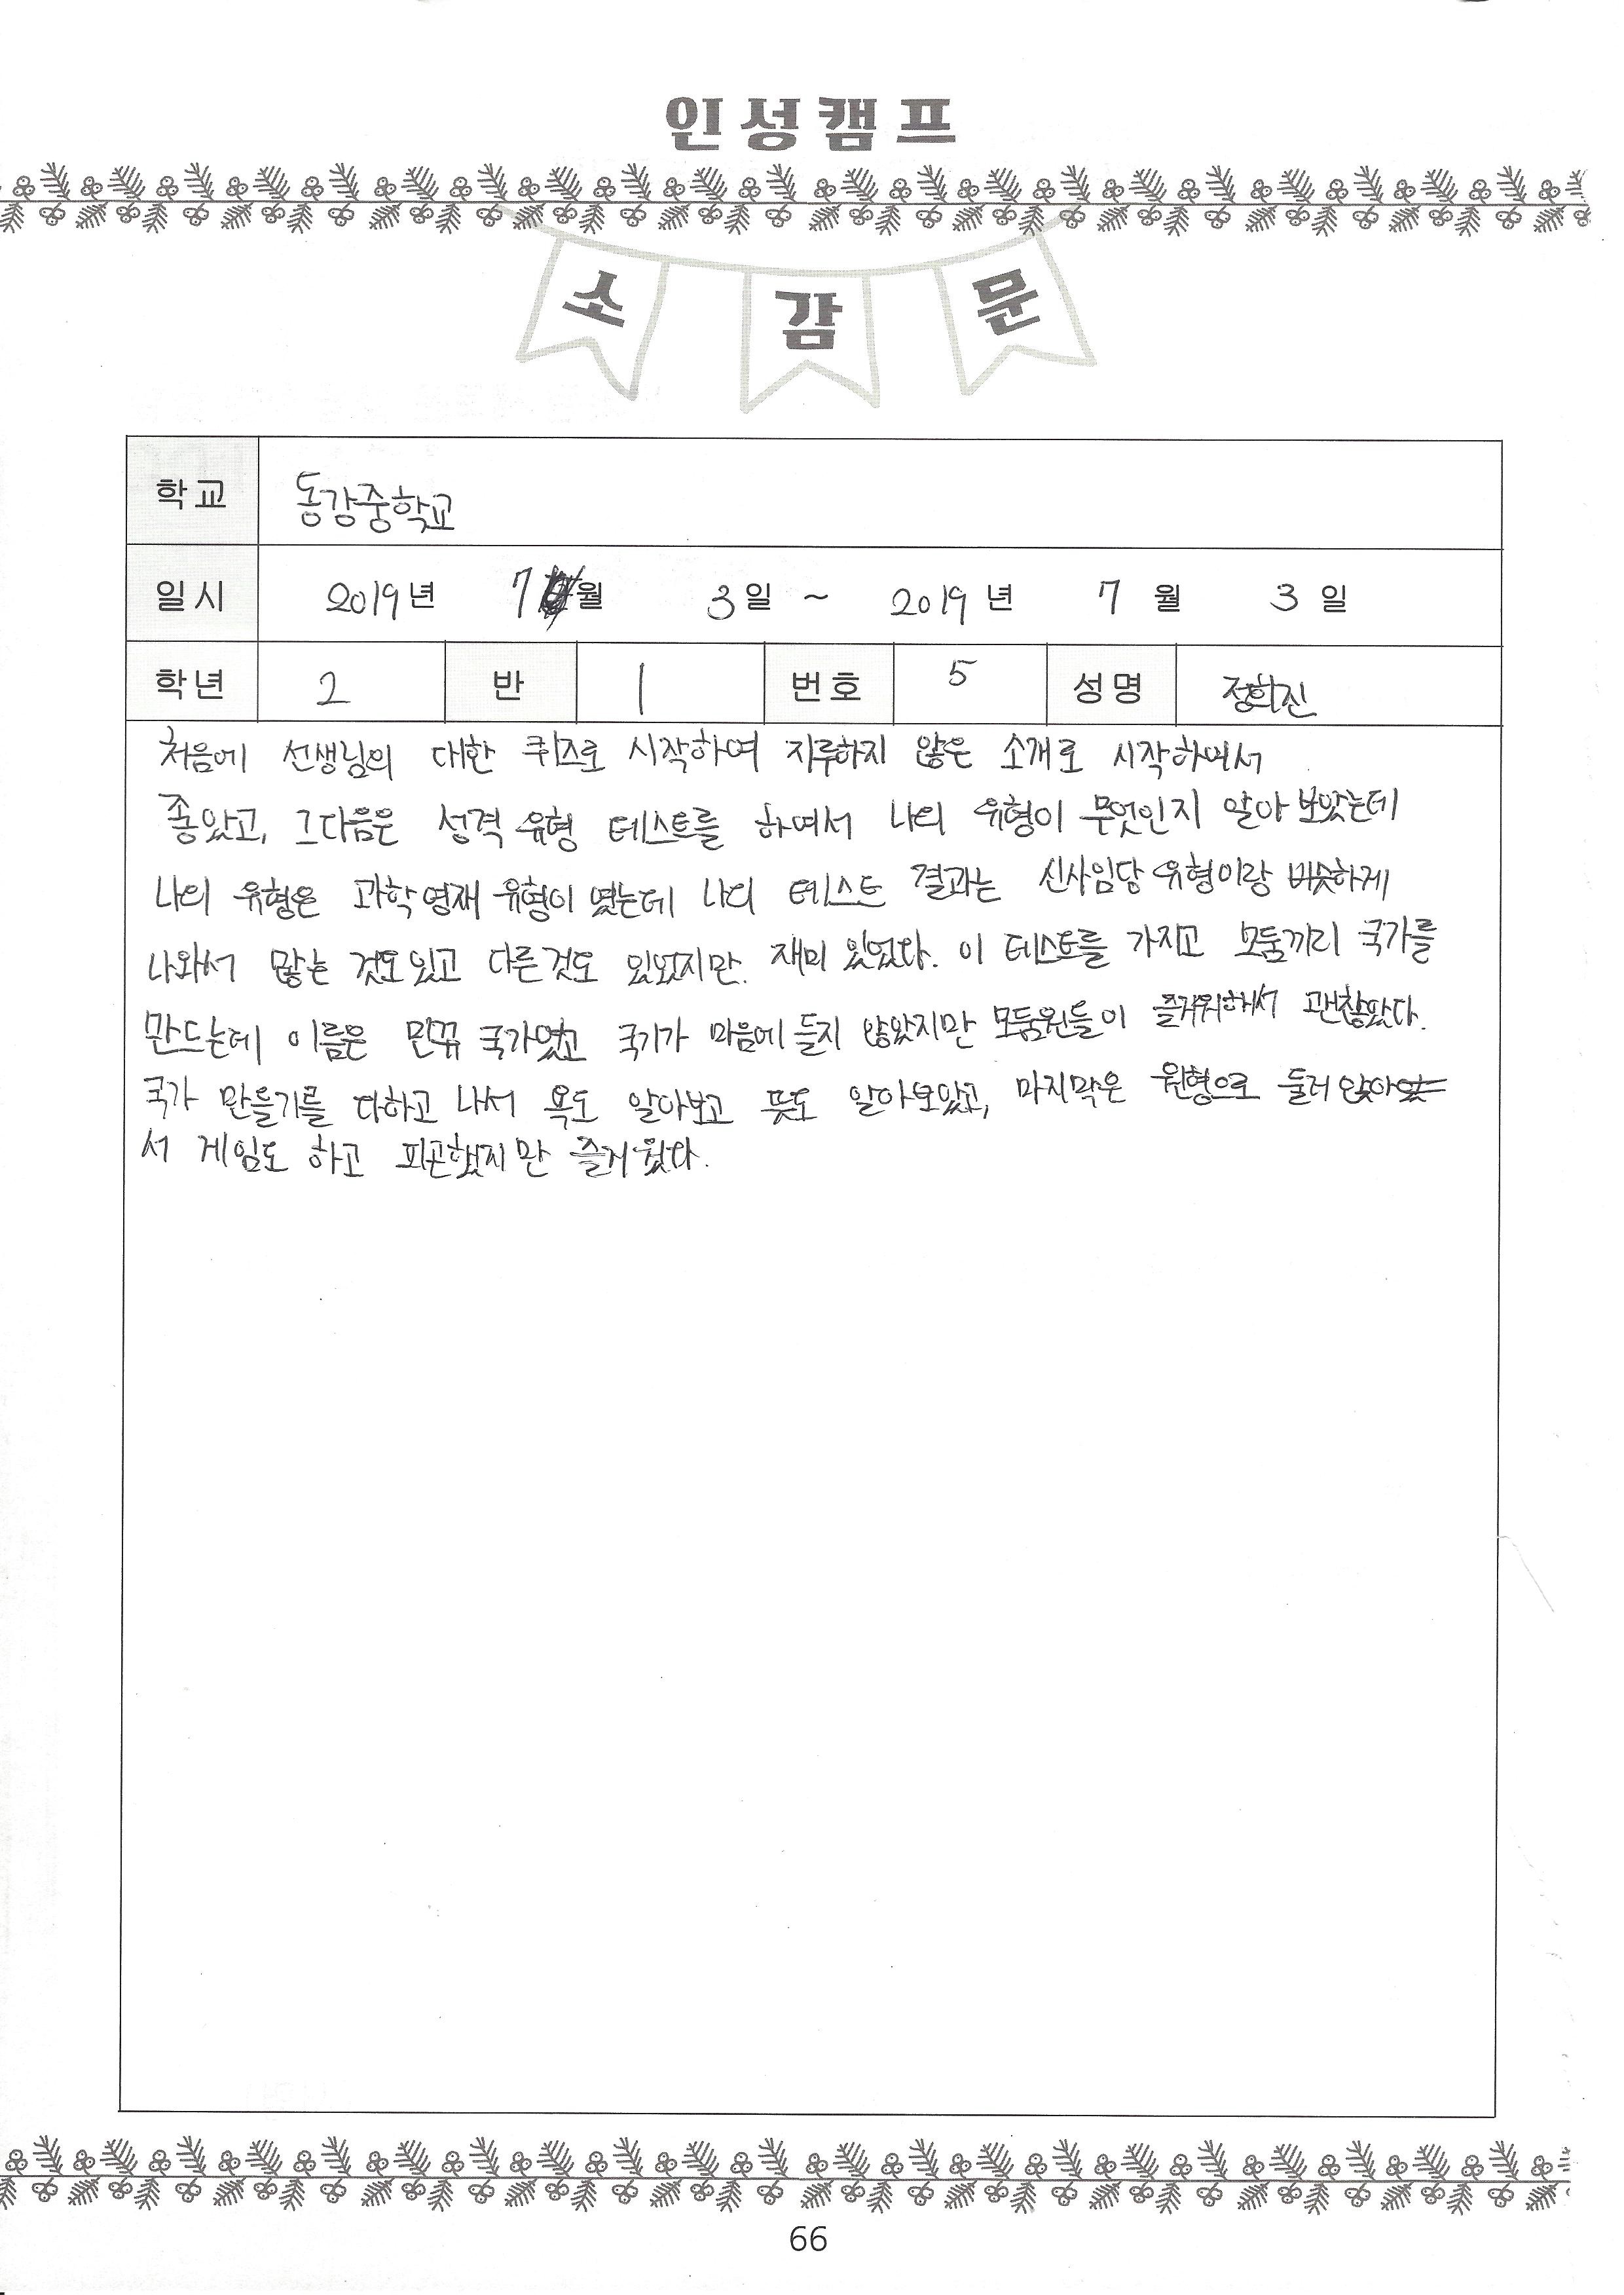 인성캠프
소감문
학교 동강중학교
일시 2019년 7월 3일 ~ 2019년 7월 3일
학년 2 반 1 번호 5 성명 정희진
처음에 선생님의 대한 퀴즈로 시작하여 지루하지 않은 소개로 시작하여서
좋았고, 그다음은 성격 유형 테스트를 하여서 나의 유형이 무엇인지 알아 보았는데
나의 유형은 과학영재 유형이 였는데 나의 테스트 결과는 신사임당 유형이랑 비슷하게
나와서 많는 것도 있고 다른것도 있었지만. 재미 있었다. 이 테스트를 가지고 모둠끼리 국가를
만드는데 이름은 국가였고 국기가 마음에 들지 않았지만 모둠원들이 즐거워해서 괜찮았다.
국가 만들기를 다하고 나서 욕도 알아보고 뜻도 알아보았고, 마지막은 원형으로 둘러 앉아
서 게임도 하고 피곤했지만 즐거웠다.
66